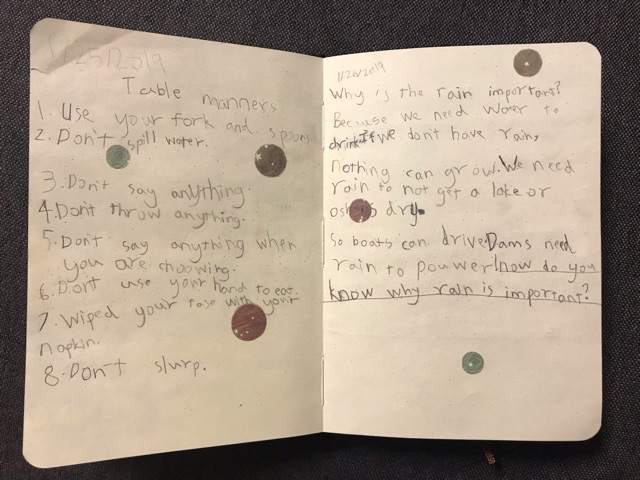 1/25/2019
Table manners
1. Use your fork and spoons
2. Don't spill water.
3. Don't say anything.
4. Don't throw anything.
5. Don't say anything when
you are choowing.
6. Don't use your hand to eat.
7. Wiped your fase with your
napkin.
8. Don't slurp.
1/26/2019
Why is the rain important?
Because we need water to
drink. If we don't have rain,
nothing can grow. We need
rain to not get a lake or
dry.
So boats can drive. Dams need
rain to pouwer! now do you
know why rain is important?